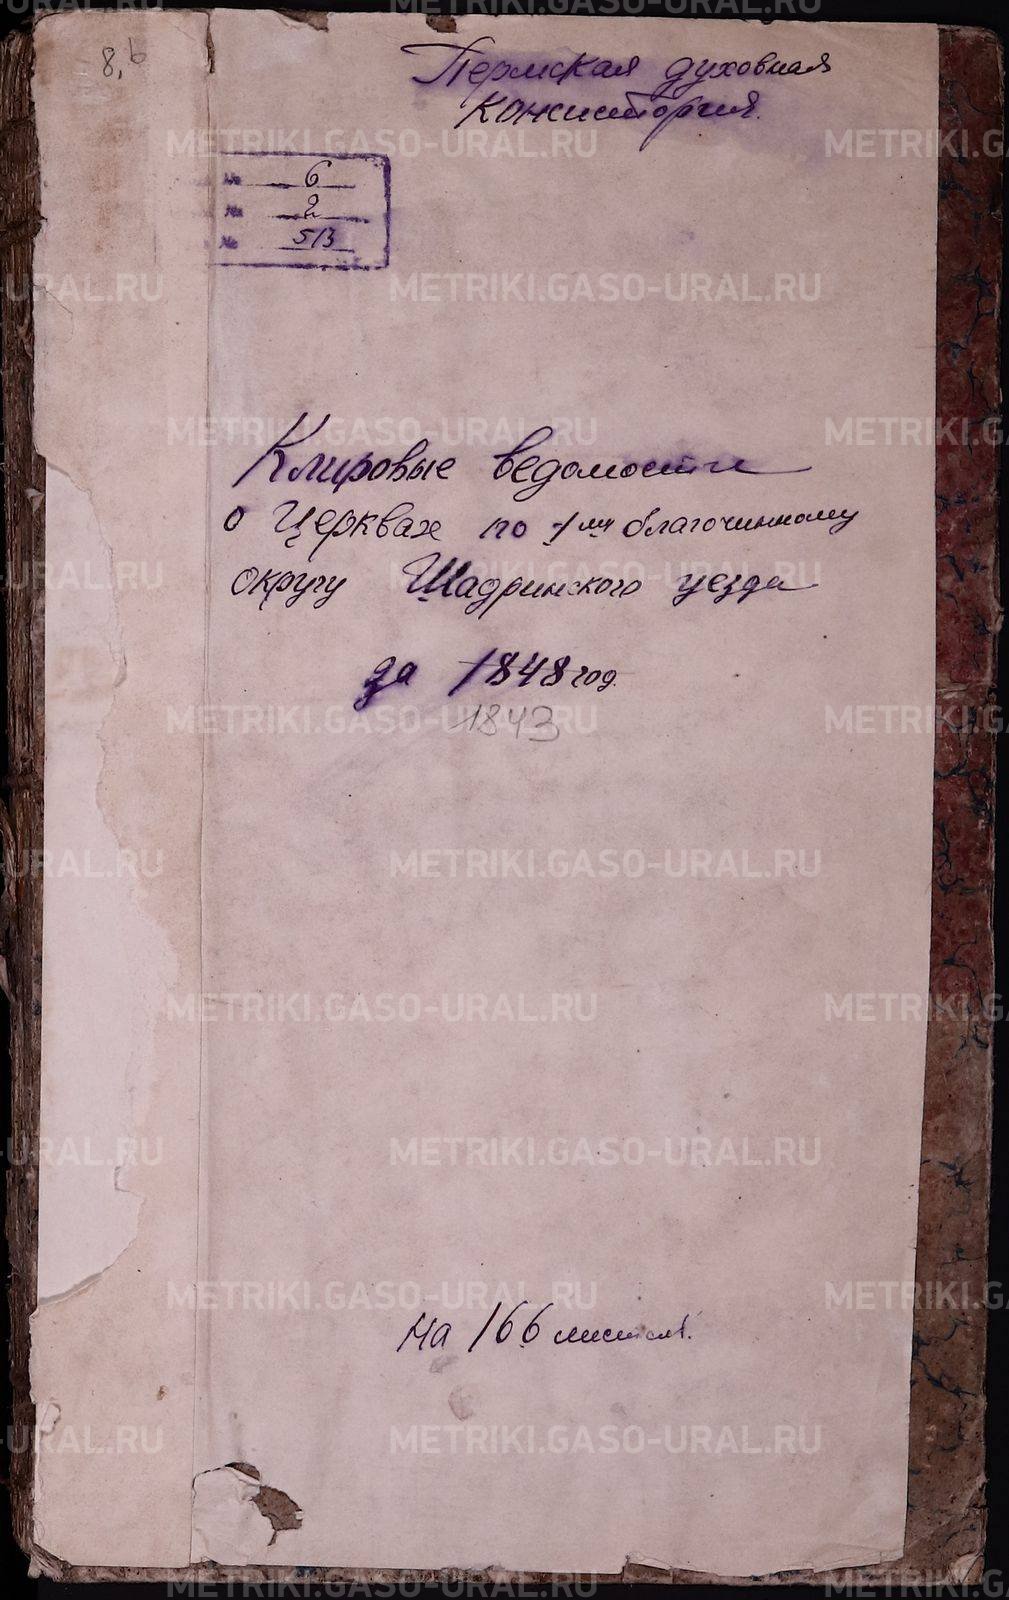 8,б
Пермская духовная
Консистория.
№ 6
№ 2
№ 513
Клировые ведомости
о Церквах по 1му благочинному
округу Шадринского уезда
за 1848 год.
1843
На 166 листах.
METRIKI.GASO-URAL.RU